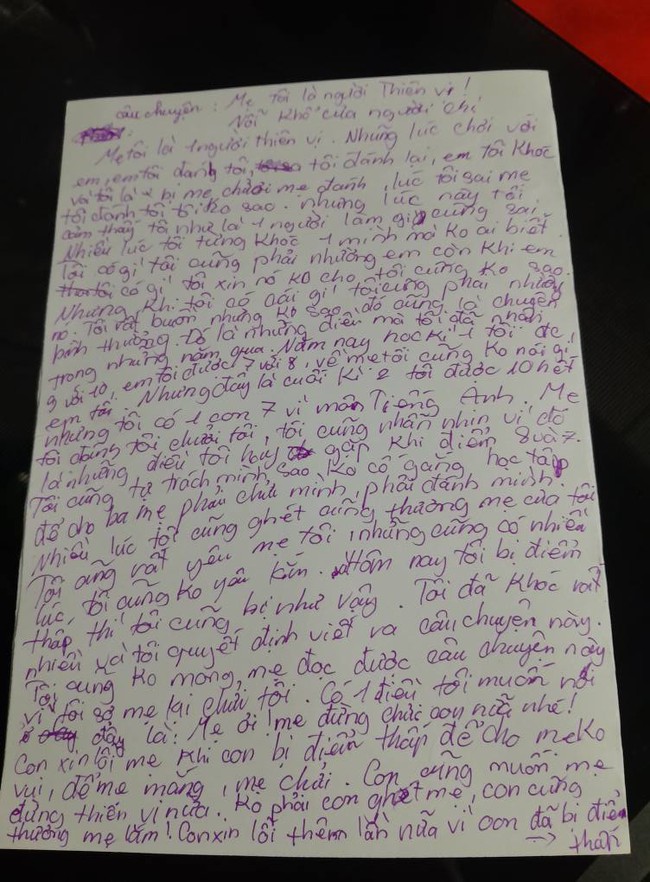 câu chuyện: Mẹ tôi là người Thiên vị!
Nỗi khổ của người chị
Mẹ tôi là 1 người thiên vị. Những lúc chơi với
em, em tôi đánh tôi, tôi đánh lại, em tôi khóc
và tôi là bị mẹ chửi mẹ đánh, lúc tôi sai mẹ
tôi đánh tôi tôi ko sao. nhưng lúc này tôi
cảm thấy tôi như là 1 người làm gì cũng sai.
Nhiều lúc tôi từng khóc 1 mình mà ko ai biết.
Tôi có gì tôi cũng phải nhường em còn khi em
tôi có gì tôi xin nó ko cho tôi cũng ko sao.
Nhưng khi tôi có cái gì tôi cũng phải nhường
nó. Tôi rất buồn nhưng ko sao đó cũng là chuyện
bình thường. Đó là những điều mà tôi đã nhận
trong những năm qua. Năm nay học kì 1 tôi đc
9 với 10, em tôi được 7 với 8, về mẹ tôi cũng ko nói gì
em tôi. Nhưng đây là cuối kì 2 tôi được 10 hết
nhưng tôi có 1 con 7 vì môn Tiếng Anh. Mẹ
tôi đánh tôi chửi tôi, tôi cũng nhẫn nhịn vì đó
là những điều tôi hay gặp khi điểm 8 và 7.
Tôi cũng tự trách mình sao ko cố gắng học tập
để cho ba mẹ phải chửi mình, phải đánh mình.
Nhiều lúc tôi cũng ghét cũng thương mẹ của tôi
Tôi cũng rất yêu mẹ tôi, nhưng cũng có nhiều
lúc, tôi cũng ko yêu lắm. Hôm nay tôi bị điểm
thấp thì tôi cũng bị như vậy. Tôi đã khóc rất
nhiều và tôi quyết định viết ra câu chuyện này.
Tôi cung ko mong, mẹ đọc được câu chuyện này
vì tôi sợ mẹ lại chửi tôi. Có 1 điều tôi muốn nói
ở đây là: Mẹ ơi! mẹ đừng chửi con nữa nhé!
Con xin lỗi mẹ khi con bị điểm thấp để cho mẹ ko
vui, để mẹ mắng, mẹ chửi. Con cũng muốn mẹ
đừng thiên vị nữa. Ko phải con ghét mẹ, con cũng
thương mẹ lắm! Con xin lỗi thêm lần nữa vì con đã bị điểm
→ thấp